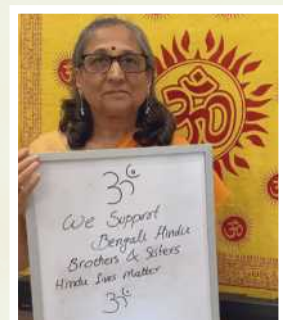 ॐ
We Support
Bengali Hindu
Brothers & Sisters
Hindu lives matter
ॐ